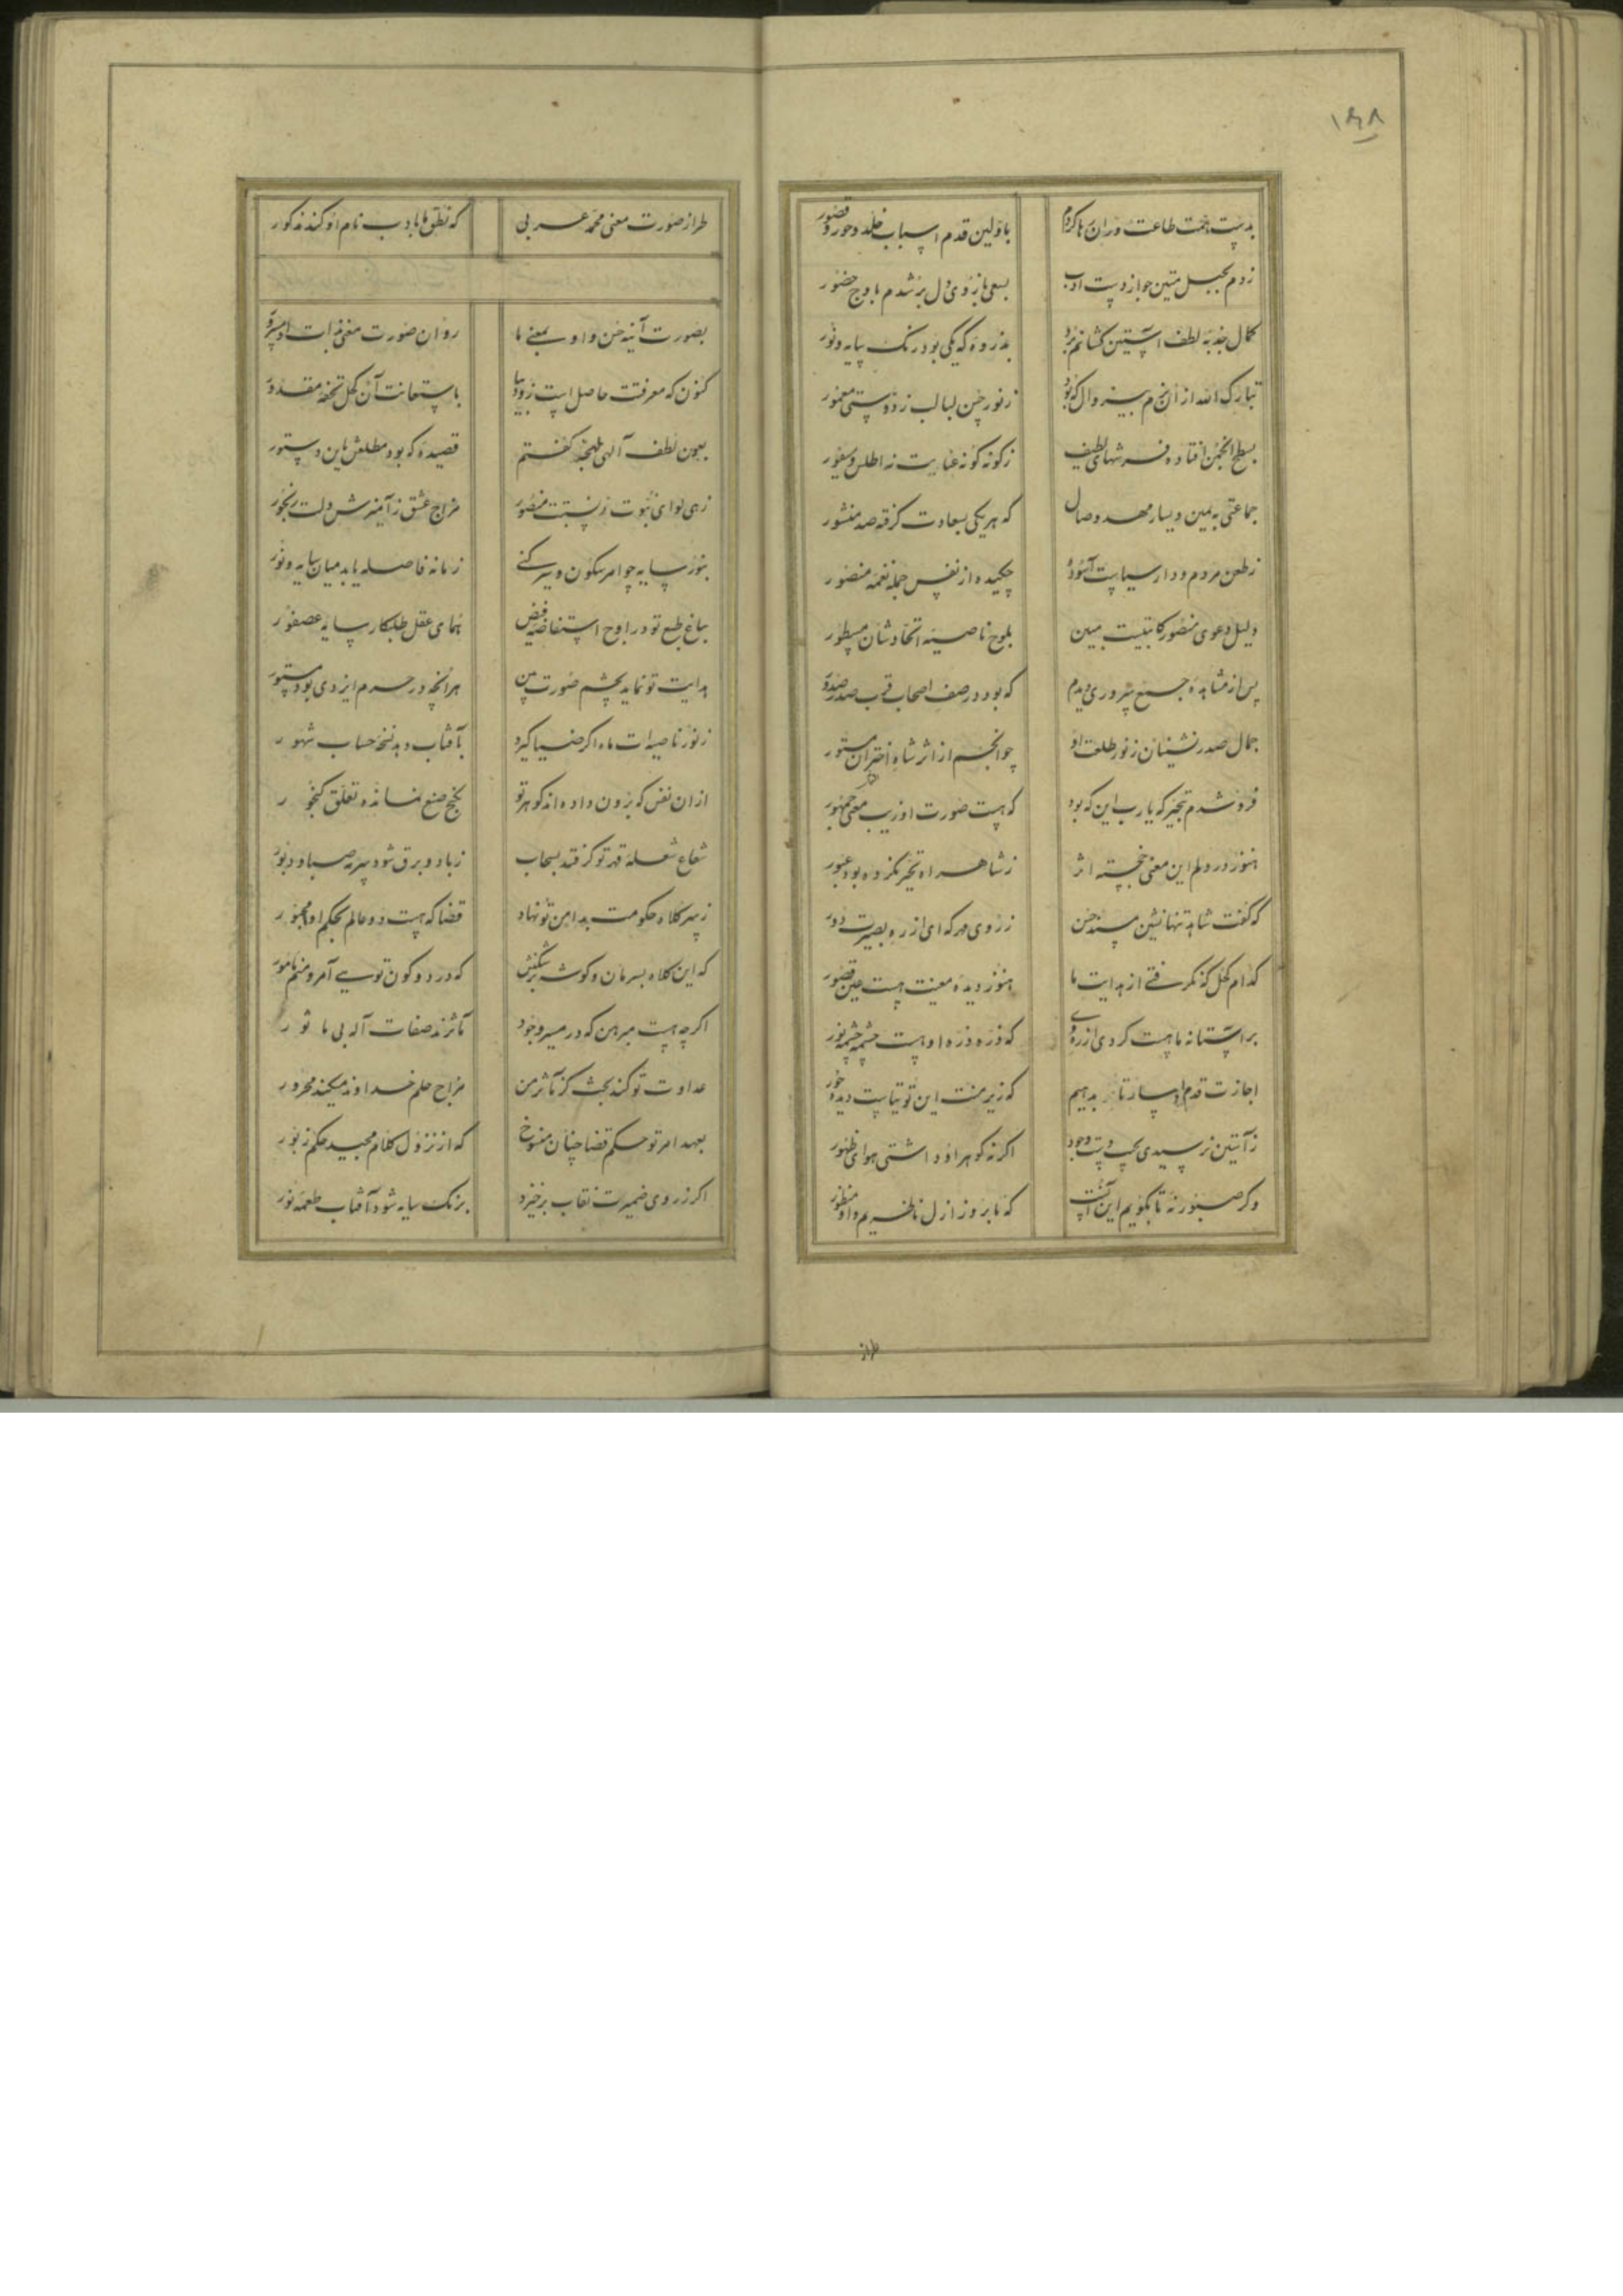 ۱۶۸
بدست همت طاعت دران رها کردم باولین قدم اسباب خلد و حور و قصور
زدم بحبل متین جواز دست ادب بسعی بازوی دل بر شدم باوج حضور
کمال جذبه لطف آستین کشانم برد بذروه که یکی بود رنگ سایه و نور
تبارک الله از ان انجمن زنور حسن لبالب ز دوستی معمور
بسطح انجمن افتاده فرشهای لطیف زگونه گونه عنایت نه اطلس و سیفور
جماعتی به یمین و یسار مهد وصال که هریکی بسعادت گرفته صد منشور
زطعن مردم و دار سیاست آسوده چکیده از نفس جمله نغمه منصور
دلیل دعوی منصور کاتبیست مبین بلوح ناصیه اتحادشان مسطور
پس از مشاهده جمع سروری دیدم که بود در صف اصحاب قرب صدر صدور
جمال صدرنشینان زنور طلعت او چو انجم از اثر شاه اختران مستور
فرو شدم بتحیر که یارب این که بود که هست صورت او زیب معنی جمهور
هنوز در دلم این معنی خجسته اثر زشاهراه تحیر نکرده بود عبور
که گفت شاهد تنها نشین مسند حسن زروی مهر که ای از ره بصیرت دور
کدام کحل که نگرفتی از هدایت ما هنوز دیده معنیت هست عین قصور
بر آستانه ما هست گردی از ره وی که ذره ذره او هست چشمه چشمه نور
اجازت قدم که زیر منت این توتیاست دیده حور
زآستین نرسیدی بجیب هست وجود اگرنه گوهر او داشتی هوای ظهور
وگر صبور نه تا بگویم این آنست که تا بروز ازل ناظریم و او منظور
طراز
طراز صورت معنی محمد عربی که نطق ها بادب نام او کند مذکور
بصورت آینه حسن و او بمعنی ما روان صورت معنی بذات او مسرور
کنون که معرفتت حاصل است زود بیا باستعانت آن کحل تحفه مقدور
بعون لطف الهی بلهجه گفتم قصیده که بود مطلعش باین دستور
زهی لوای نبوت زنسبتت منصور مزاج عشق زآمیزش دلت رنجور
بنور سایه چو امر سکون و سیر کنی زمانه فاصله یابد میان سایه و نور
بباغ طبع تو در اوج استفاضه فیض همای عقل طلبکار سایه عصفور
هدایت تو نماید بچشم صورت بین هرآنچه در حرم ایزدی بود مستور
زنور ناصیه ات ماه اگر ضیا گیرد بآفتاب دهد نسخه حساب شهور
ازان نفس که برون داده اند گوهر تو بگنج صنع نمانده تعلق گنجور
شعاع شعله قهر تو گر فتد بسحاب زباد و برق شود سرمه صبا و دبور
زسر کلاه حکومت بدامن تو نهاد قضا که هست دو عالم بحکم او مجبور
که این کلاه بسر مان و گوشه بر شکنش که در دو کون تویی آمر و منم مامور
اگرچه هست مبرهن که در مسیر وجود مآثرند صفات اله بی ما ثور
عداوت تو کند بحث کز مآثر من مزاج حلم خداوند میکند محرور
بعهد امر تو حکم قضا چنان منسوخ که از نزول کلام مجید حکم زبور
اگر زروی ضمیرت نقاب برخیزد برنگ سایه شود آفتاب طعمه نور